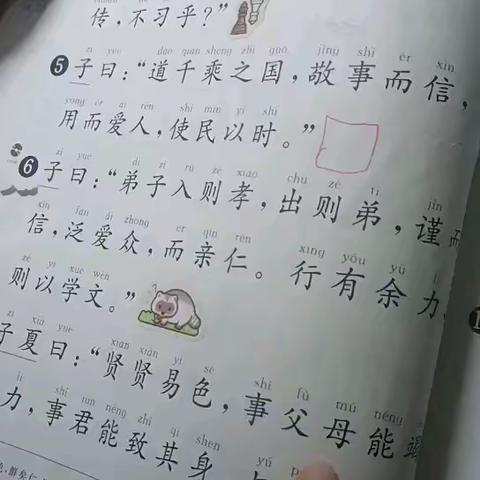 传，不习乎？”
zǐ yuē dào qiān shèng zhī guó jìng shì ér xìn
❺子曰：“道千乘之国，敬事而信，
yòng ér ài rén shǐ mín yǐ shí
用而爱人，使民以时。”
zǐ yuē dì zǐ rù zé xiào chū zé tì jǐn
❻子曰：“弟子入则孝，出则弟，谨而
xìn fàn ài zhòng ér qīn rén xíng yǒu yú lì
信，泛爱众，而亲仁。行有余力
zé yǐ xué wén
则以学文。”
zǐ xià yuē xián xián yì sè shì fù mǔ néng
子夏曰：“贤贤易色，事父母能
lì shì jūn néng zhì qí shēn yǔ
力，事君能致其身，